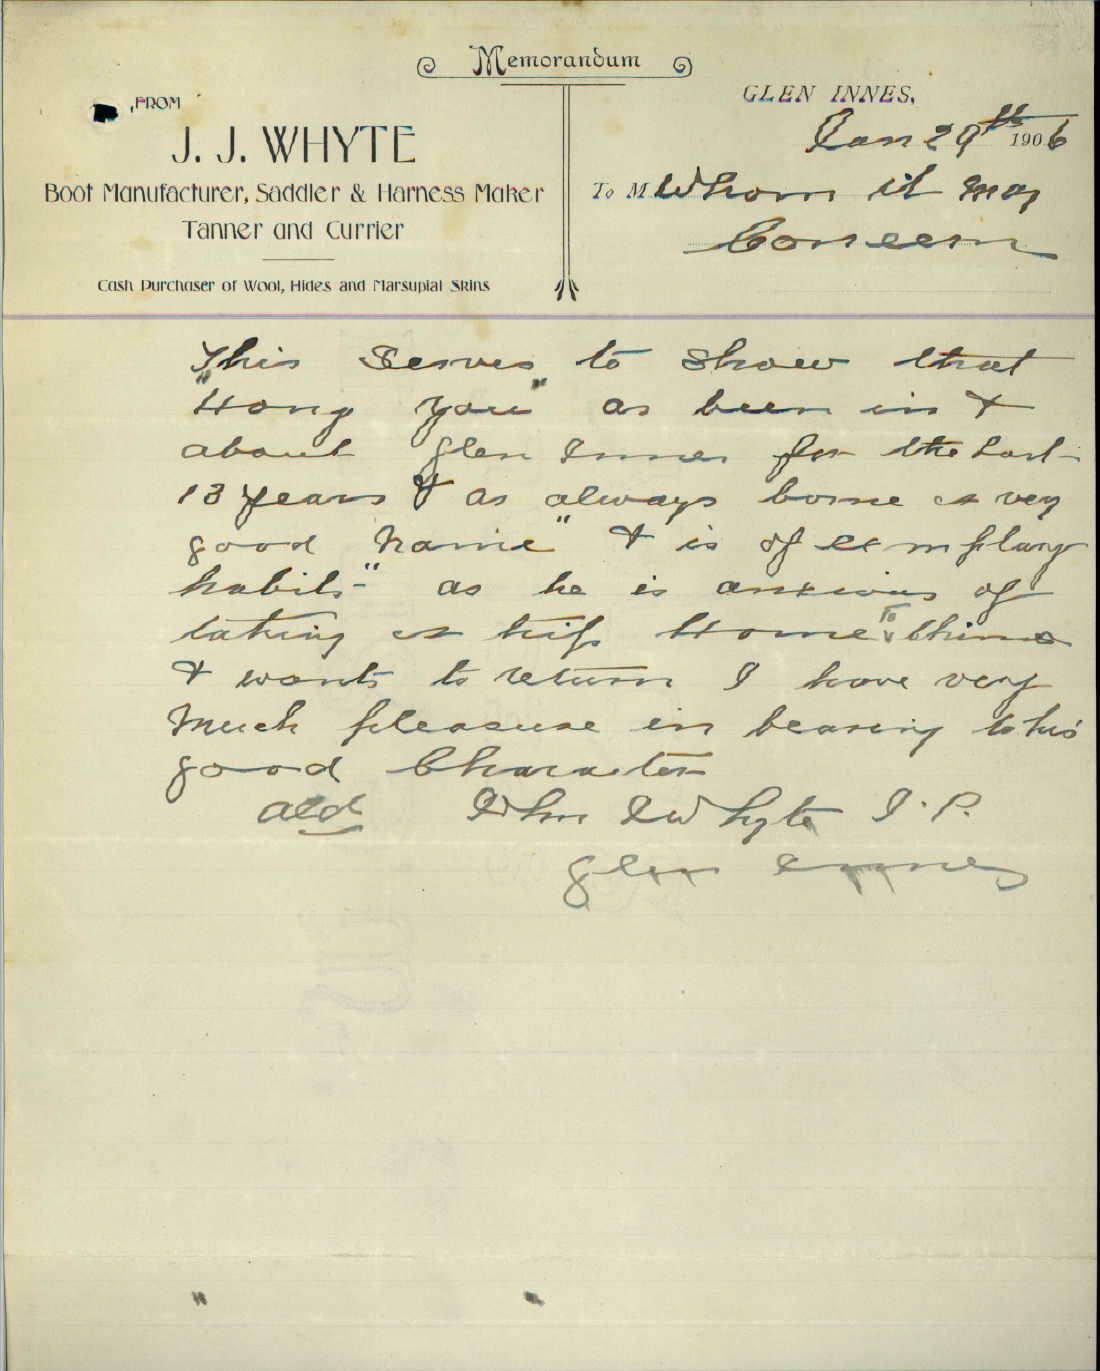 Memorandum
FROM
J. J. WHYTE
Boot Manufacturer, Saddler & Harness Maker
Tanner and Currier
Cash Purchaser of Wool, Hides and Marsupial Skins
GLEN INNES,
Jan 29th 1906
To M Whom it may
Concern
This serves to show that
"Hong You" as been in &
about Glen Innes for the Last
13 years & as always borne a very
good name" & is of exemplary
habits" as he is anxious of
taking a trip Home to China
& wants to return I have very
Much pleasure in bearing to his
good Character
ald John J Whyte J. P.
Glen Innes